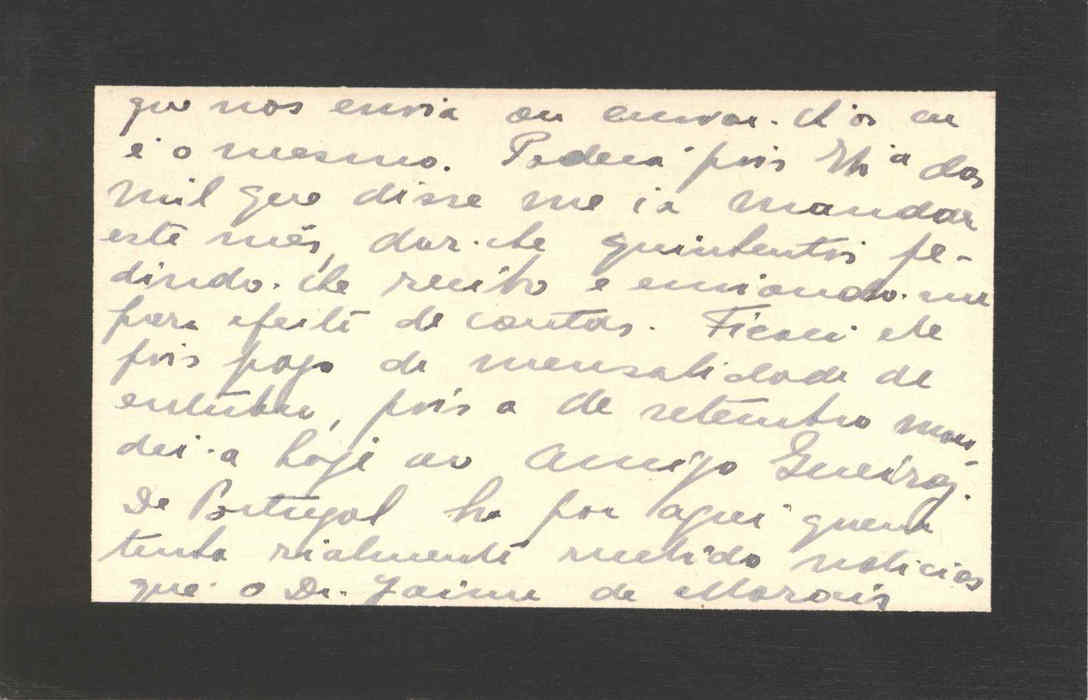 que nos envia ou enviar-lh'os eu
é o mesmo. Poderá pois dos
mil que disse me ia mandar
este mês, dar-lhe quinhentos pe-
dindo-lhe recibo e enviando-me
para efeito de contas. Ficará ele
pois pago da mensalidade de
outubro, pois a de setembro man-
dei-a hoje ao amigo Queiroz.
De Portugal ha por aqui quem
tenha rialmente recebido noticias
que o Dr. Jaime de Morais